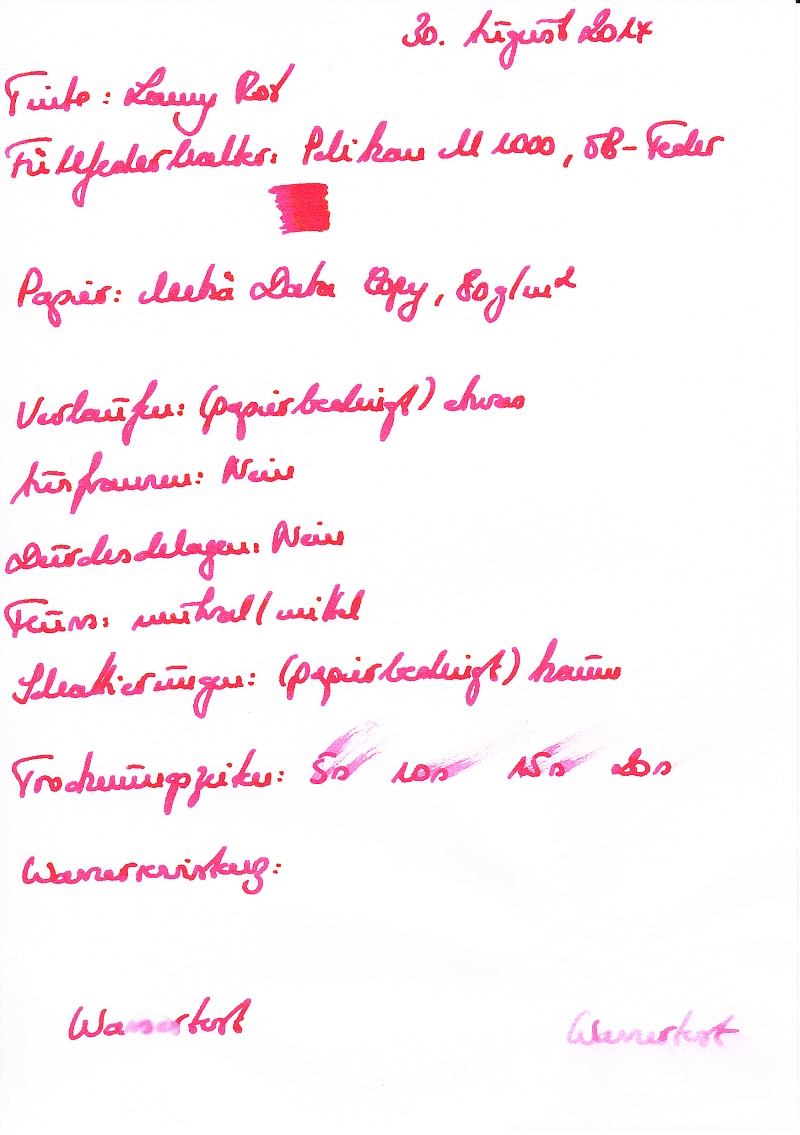 30. August 2014
Tinte: Lamy Rot
Füllfederhalter: Pelikan M 1000, OB-Feder
Papier: Data Copy, 80g/m²
Verlaufen: (papierbedingt) etwas
Ausfransen: Nein
Durchschlagen: Nein
Fluss: neutral/mittel
Schattierungen: (papierbedingt) kaum
Trocknungszeiten: 5s 10s 15s 20s
Wasserwirkung:
Wassertest Wassertest